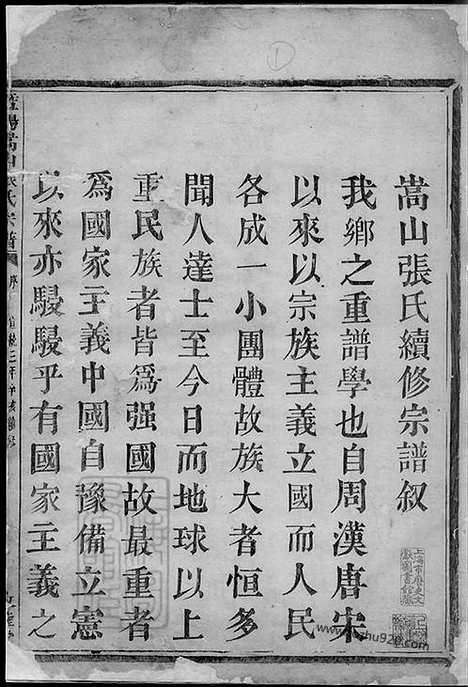 嵩山張氏續修宗譜叙
我鄉之重譜學也自周漢唐宋
以來以宗族主義立國而人民
各成一小團體故族大者恒多
聞人達士至今日而地球以上
重民族者皆爲强國故最重者
爲國家主義中國自豫備立憲
以來亦駸駸乎有國家主義之
嵩山張氏宗譜
上海市歷史文獻圖書館藏
①